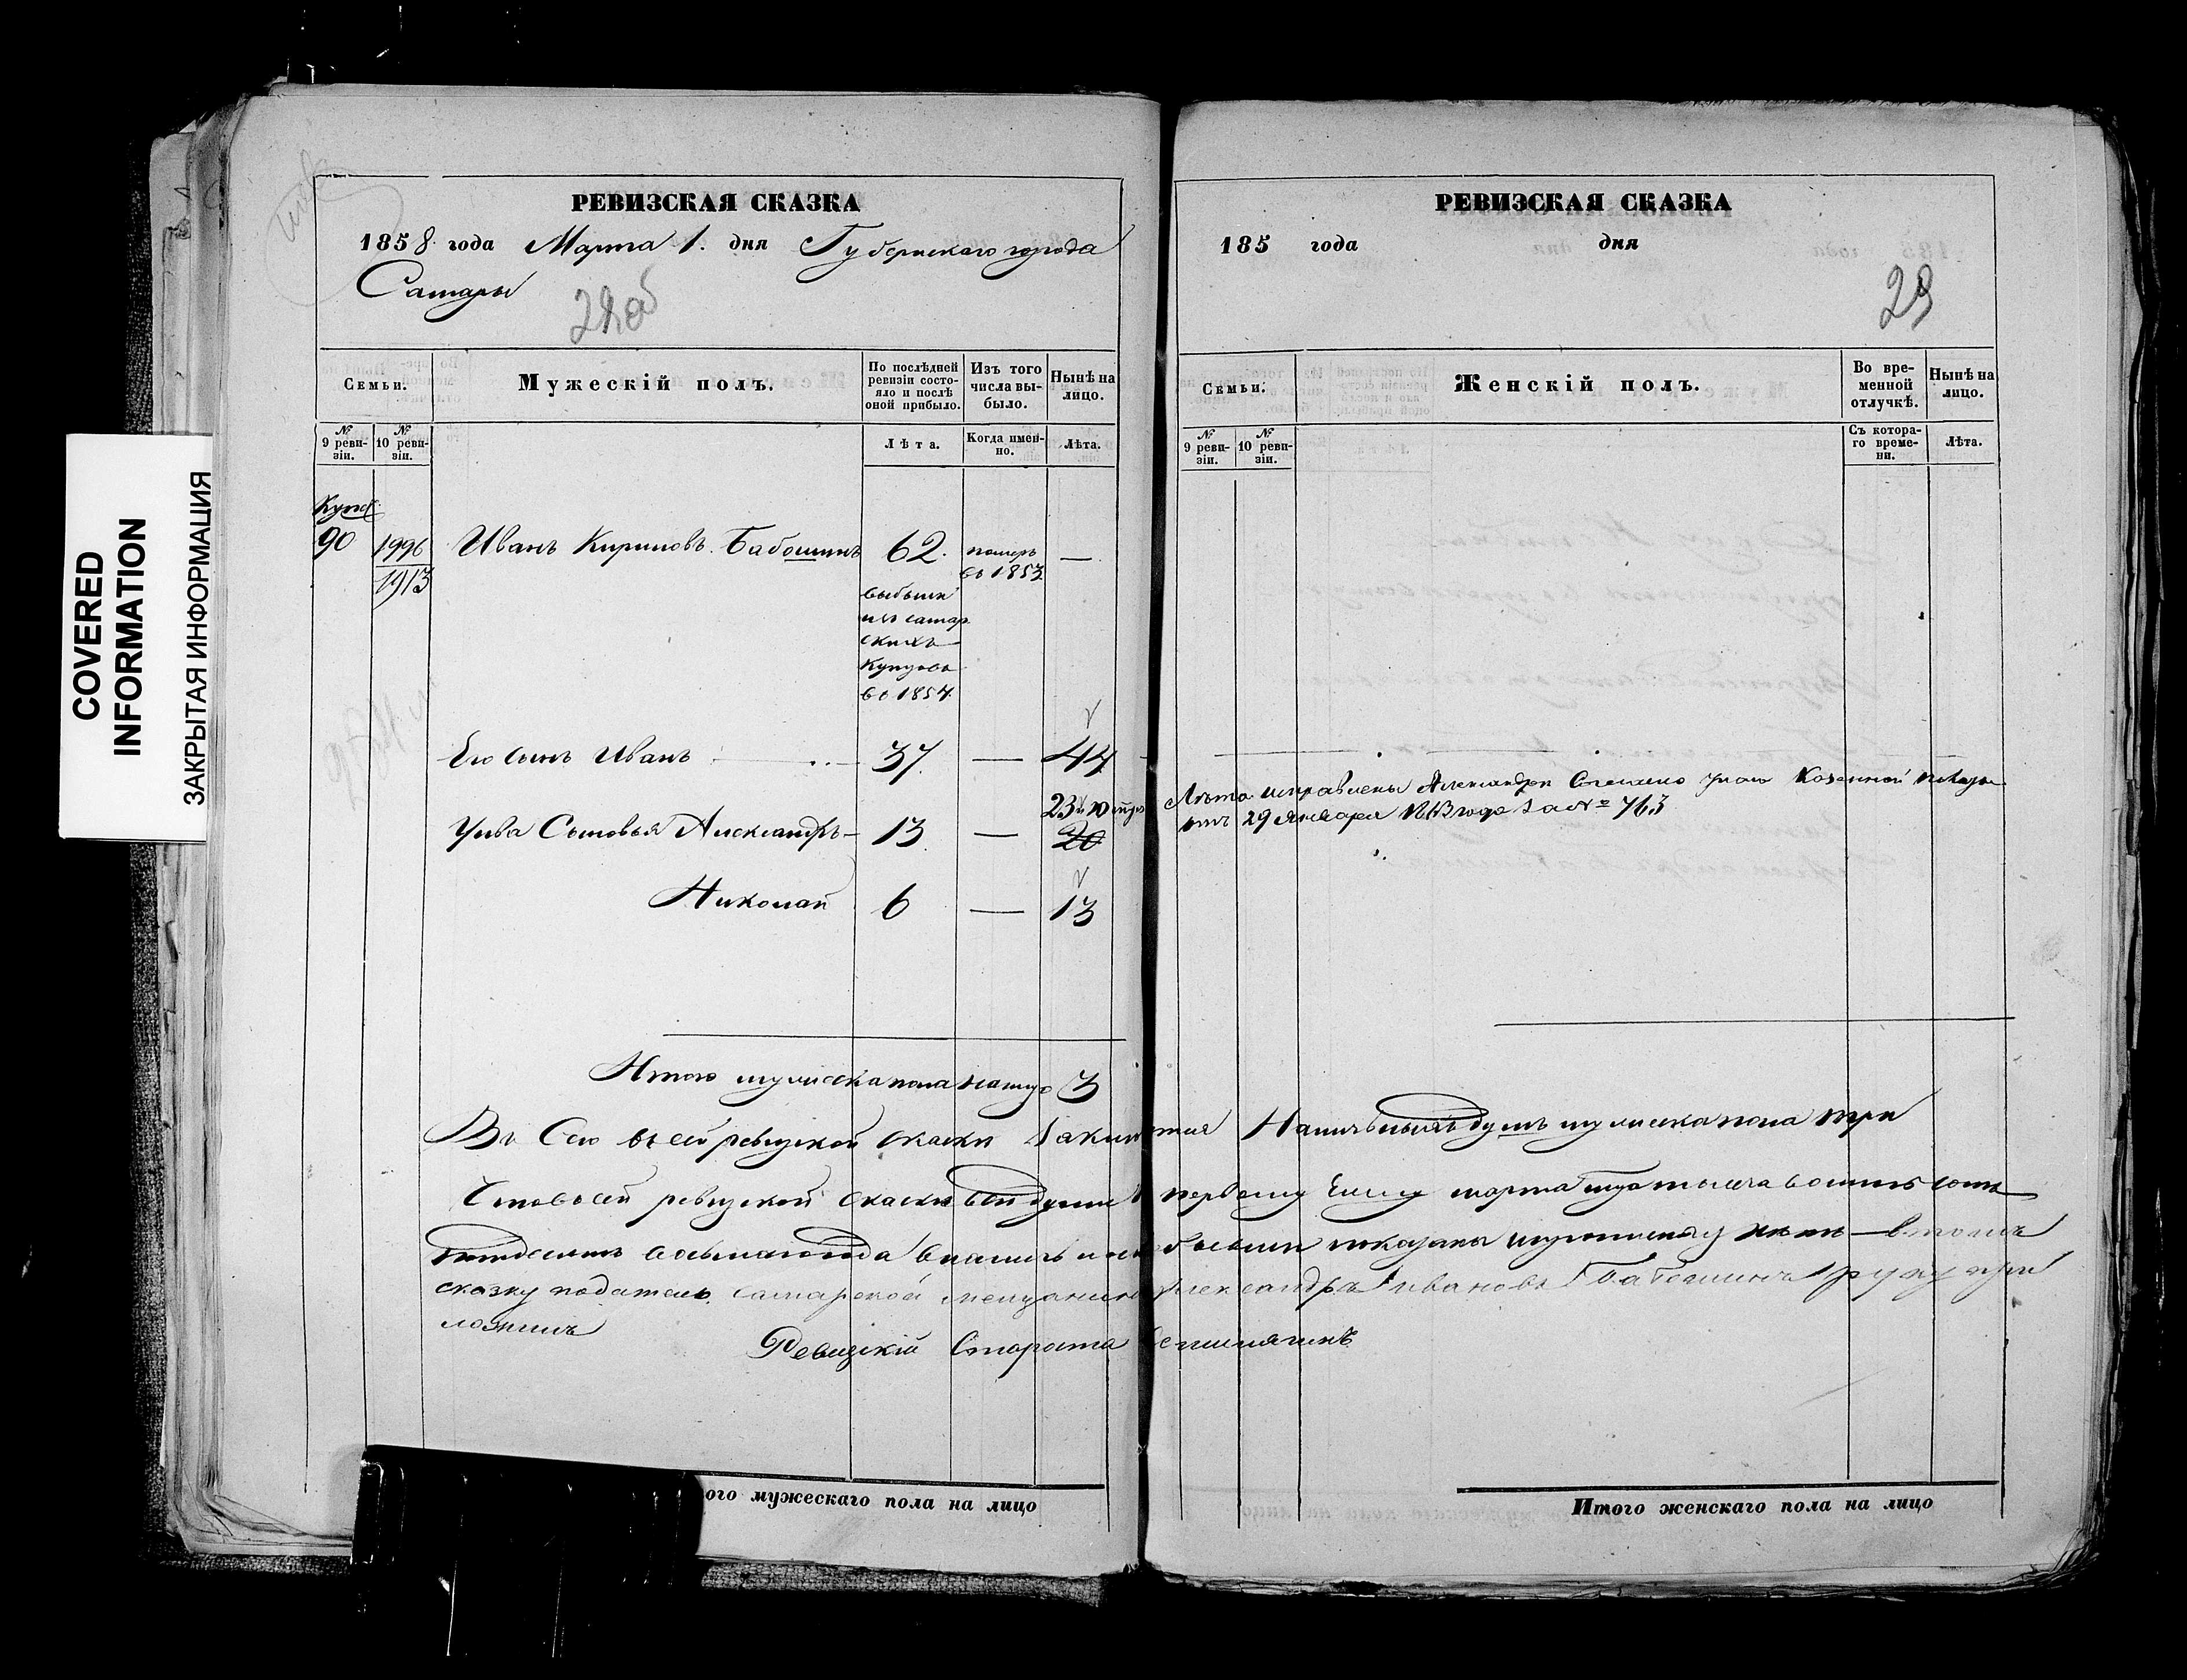 COVERED
INFORMATION
ЗАКРЫТАЯ ИНФОРМАЦИЯ
РЕВИЗСКАЯ СКАЗКА
1858 года Марта 1. дня Губернскаго города
Самары
28об
Семьи.
Мужескій полъ.
По послѣдней ревизіи состояло и послѣ оной прибыло.
Изъ того числа выбыло.
Нынѣ на лицо.
№ 9 ревизіи.
№ 10 ревизіи.
Лѣта.
Когда именно.
Лѣта.
Купе.
90 1996 Иванъ Кириловъ Бабошинъ 62. померъ —
1913 въ 1853
выбыли
изъ самар
скихъ
купцовъ
въ 1854
Его сынъ Иванъ 37. — 44
23
У Ивана Сыновья Александръ — 13. — 20
Николай 6 — 13
Итого мужеска пола налицо 3
ого мужескаго пола на лицо
РЕВИЗСКАЯ СКАЗКА
185 года дня
29
Семьи.
Женскій полъ.
Во временной отлучкѣ.
Нынѣ на лицо.
№ 9 ревизіи.
№ 10 ревизіи.
Съ котораго времени.
Лѣта.
Лѣта исправлены Александра Согласно указа Казенной палаты
отъ 29 Января года за № 763
Въ Сей ревизской сказки наличныхъ душъ мужеска пола три
Что въ сей ревизской сказки всѣ души къ первому числу марта тысяча восемь сотъ
пятьдесятъ восьмаго года показаны нѣтъ — въ томъ
сказку подателю самарской мещанинъ Александръ Ивановъ Бабошинъ руку при
ложилъ
Ревизскій Староста
Итого женскаго пола на лицо